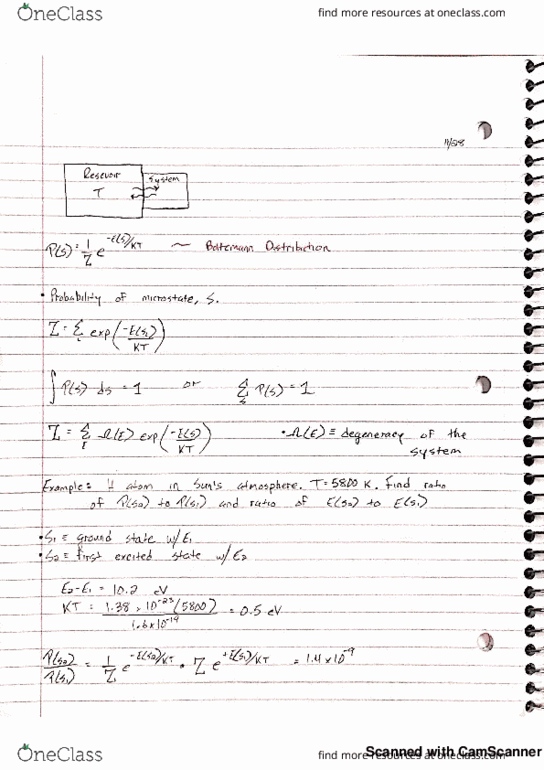 OneClass
find more resources at oneclass.com
Resevoir
T
System
P(s) = 1/Z e^(-E(s)/KT) ~ Boltzmann Distribution
• Probability of microstate, S.
Z = Σ exp(-E(s)/KT)
∫ P(s) ds = 1 or Σ P(s) = 1
Z = Σ Ω(E) exp(-E(s)/KT) • Ω(E) ≡ degeneracy of the
system
Example: H atom in Sun's atmosphere. T = 5800 K. Find ratio
of P(s₂) to P(s₁) and ratio of E(s₂) to E(s₁)
• S₁ ≡ ground state w/ E₁
• S₂ = first excited state w/ E₂
E₂-E₁ = 10.2 eV
KT = 1.38 × 10^-23 (5800) / 1.6×10^-19 = 0.5 eV
P(s₂)/P(s₁) = 1/Z e^(-E(s₂)/KT) • Z e^(+E(s₁)/KT) = 1.4 × 10^-9
OneClass
find more resources at oneclass.com
Scanned with CamScanner